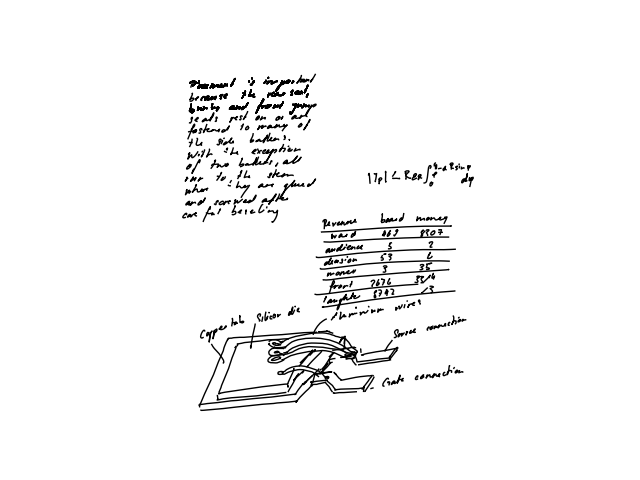 because the rear seat,
and front
seats rest on or are
fastened to many of
the side battens.
With the exception
of two battens, all
run to the stem
where they are glued
and screwed after
careful beveling
|I_P| < R e_R ∫_0 dφ
Revenue board money
ward 469 8207
audience 5 2
decision 53 6
money 3 35
front 7676
laughter 8742
Copper tab Silicon die Aluminium wires
Source connection
Gate connection